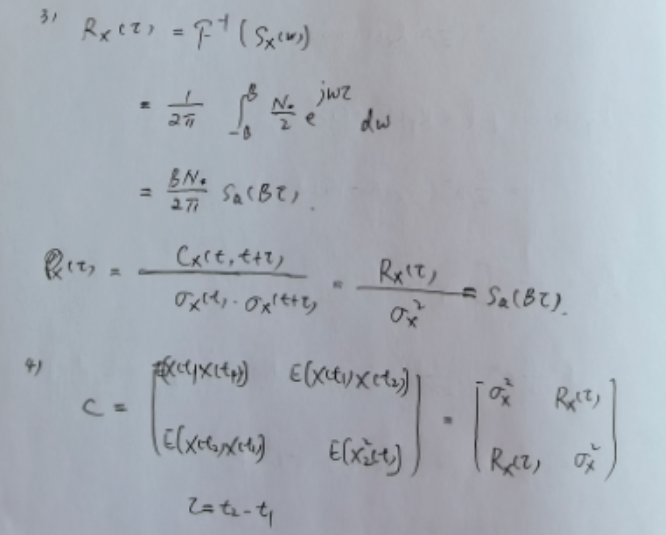 3) R_X(τ) = F⁻¹(S_X(ω))
= 1/2π ∫_{-B}^{B} N₀/2 e^{jωτ} dω
= BN₀/2π Sa(Bτ).
ρ_X(τ) = C_X(t, t+τ) / σ_X(t)·σ_X(t+τ) = R_X(τ) / σ_X² = Sa(Bτ).
4) C = [E[X(t₁)X(t₁)] E[X(t₁)X(t₂)] = [σ_X² R_X(τ)
E[X(t₂)X(t₁)] E[X₂²(t)]] R_X(τ) σ_X²]
τ = t₂ - t₁